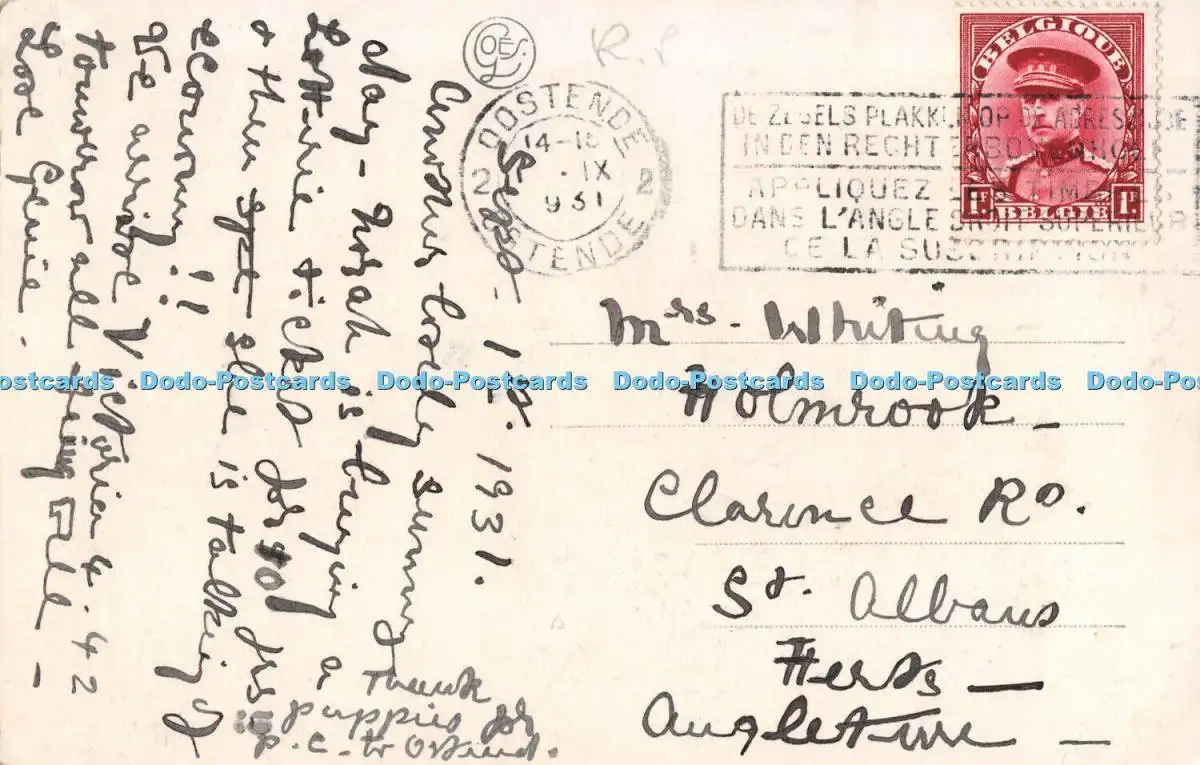 GOES
R.P
BELGIQUE
1F 1F
BELGIE
OOSTENDE
14-15
2 . IX 2
931
OSTENDE
DE ZEGELS PLAKKEN OP DE ADRESZIJDE
IN DEN RECHTER BOVENHOEK
APPLIQUEZ LES TIMBRES
DANS L'ANGLE DROIT SUPERIEUR
DE LA SUSCRIPTION
Sept. 1st. 1931.
Another lovely sunny
day - Norah is buying a
Lotterie ticket for 40 frs
& then she is talking of
economy !!
We arrive Victoria 4.42
tomorrow all being well -
Love Genie.
Thank
puppies for
p.c. to Ostend.
Mrs. Whiting
Holmrook -
Clarence Rd.
St. Albans
Herts -
Angleterre -
Dodo-Postcards Dodo-Postcards Dodo-Postcards Dodo-Postcards Dodo-Postcards